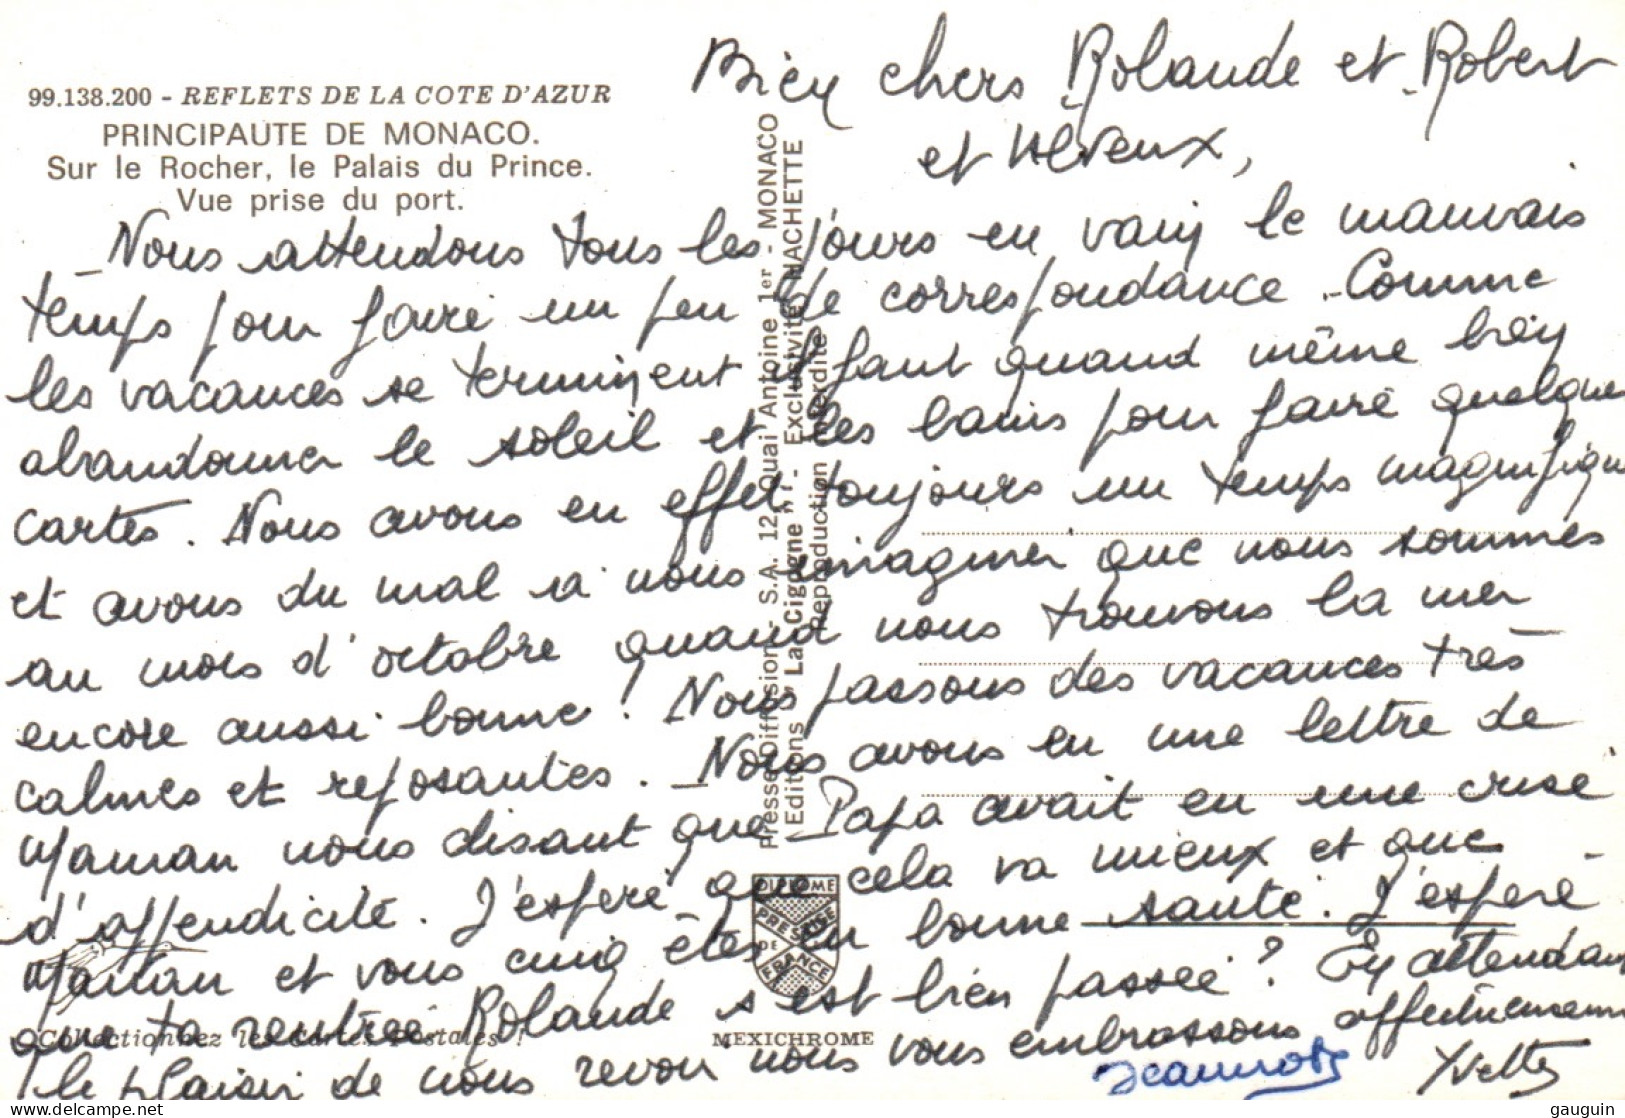 99.138.200 - REFLETS DE LA COTE D'AZUR
PRINCIPAUTE DE MONACO.
Sur le Rocher, le Palais du Prince.
Vue prise du port.
Bien chers Rolande et Robert
et Neveux,
Nous attendons tous les jours en vain le mauvais
temps pour faire un peu de correspondance. Comme
les vacances se terminent il faut quand même bien
abandonner le soleil et les bains pour faire quelques
cartes. Nous avons en effet toujours un temps magnifique
et avons du mal à nous imaginer que nous sommes
au mois d'octobre quand nous trouvons la mer
encore aussi bonne ! Nous passons des vacances très
calmes et reposantes. Nous avons eu une lettre de
Maman nous disant que Papa avait eu une crise
d'appendicite. J'espère que cela va mieux et que
Maman et vous cinq êtes en bonne santé. J'espère
que ta rentrée Rolande s'est bien passée ? En attendant
le plaisir de nous revoir nous vous embrassons affectueusement
Jeannot Yvette
Presse Diffusion - S.A. 12, Quai Antoine 1er - MONACO
Editions "La Cigogne" - Exclusivité HACHETTE
Reproduction interdite
DIPLOME
PRESTIGE
DE
FRANCE
MEXICHROME
Collectionnez les Cartes Postales !
delcampe.net
gauguin